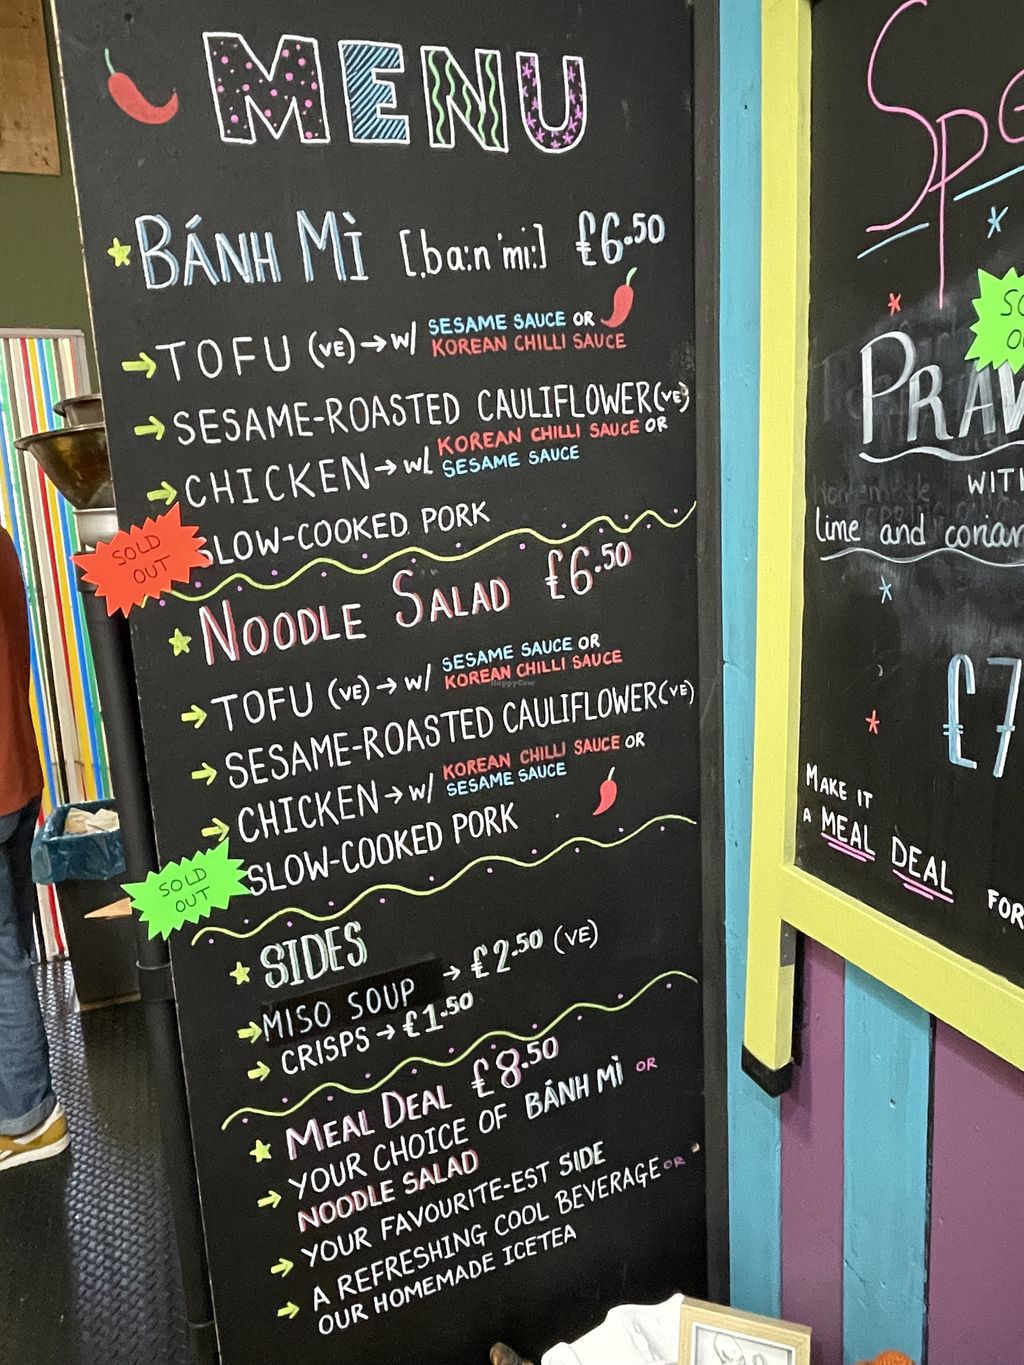 MENU
BÁNH MÌ [ˌbɑːn ˈmiː] £6.50
TOFU (VE) → w/ SESAME SAUCE OR
KOREAN CHILLI SAUCE
SESAME-ROASTED CAULIFLOWER (VE)
CHICKEN → w/ KOREAN CHILLI SAUCE OR
SESAME SAUCE
SLOW-COOKED PORK
SOLD
OUT
NOODLE SALAD £6.50
TOFU (VE) → w/ SESAME SAUCE OR
KOREAN CHILLI SAUCE
SESAME-ROASTED CAULIFLOWER (VE)
CHICKEN → w/ KOREAN CHILLI SAUCE OR
SESAME SAUCE
SLOW-COOKED PORK
SOLD
OUT
SIDES
MISO SOUP → £2.50 (VE)
CRISPS → £1.50
MEAL DEAL £8.50
YOUR CHOICE OF BÁNH MÌ OR
NOODLE SALAD
YOUR FAVOURITE-EST SIDE
A REFRESHING COOL BEVERAGE OR
OUR HOMEMADE ICETEA
HappyCow
lime and
£7
MAKE IT
A MEAL DEAL FOR